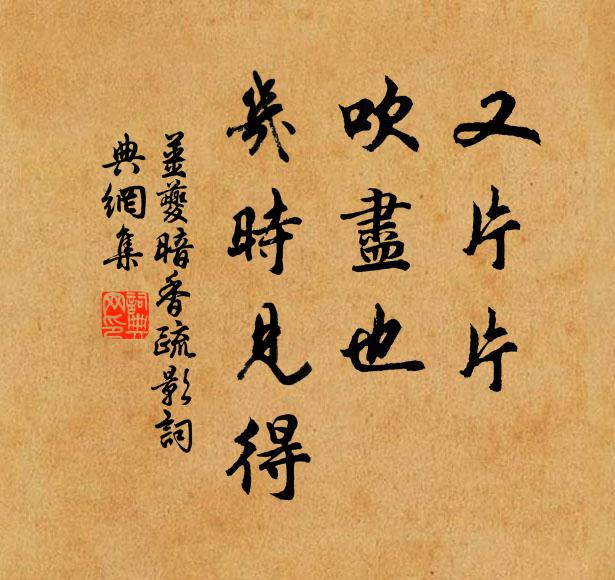 又片片
吹盡也
幾時見得
姜夔暗香疏影詞
典網集
詞典網印